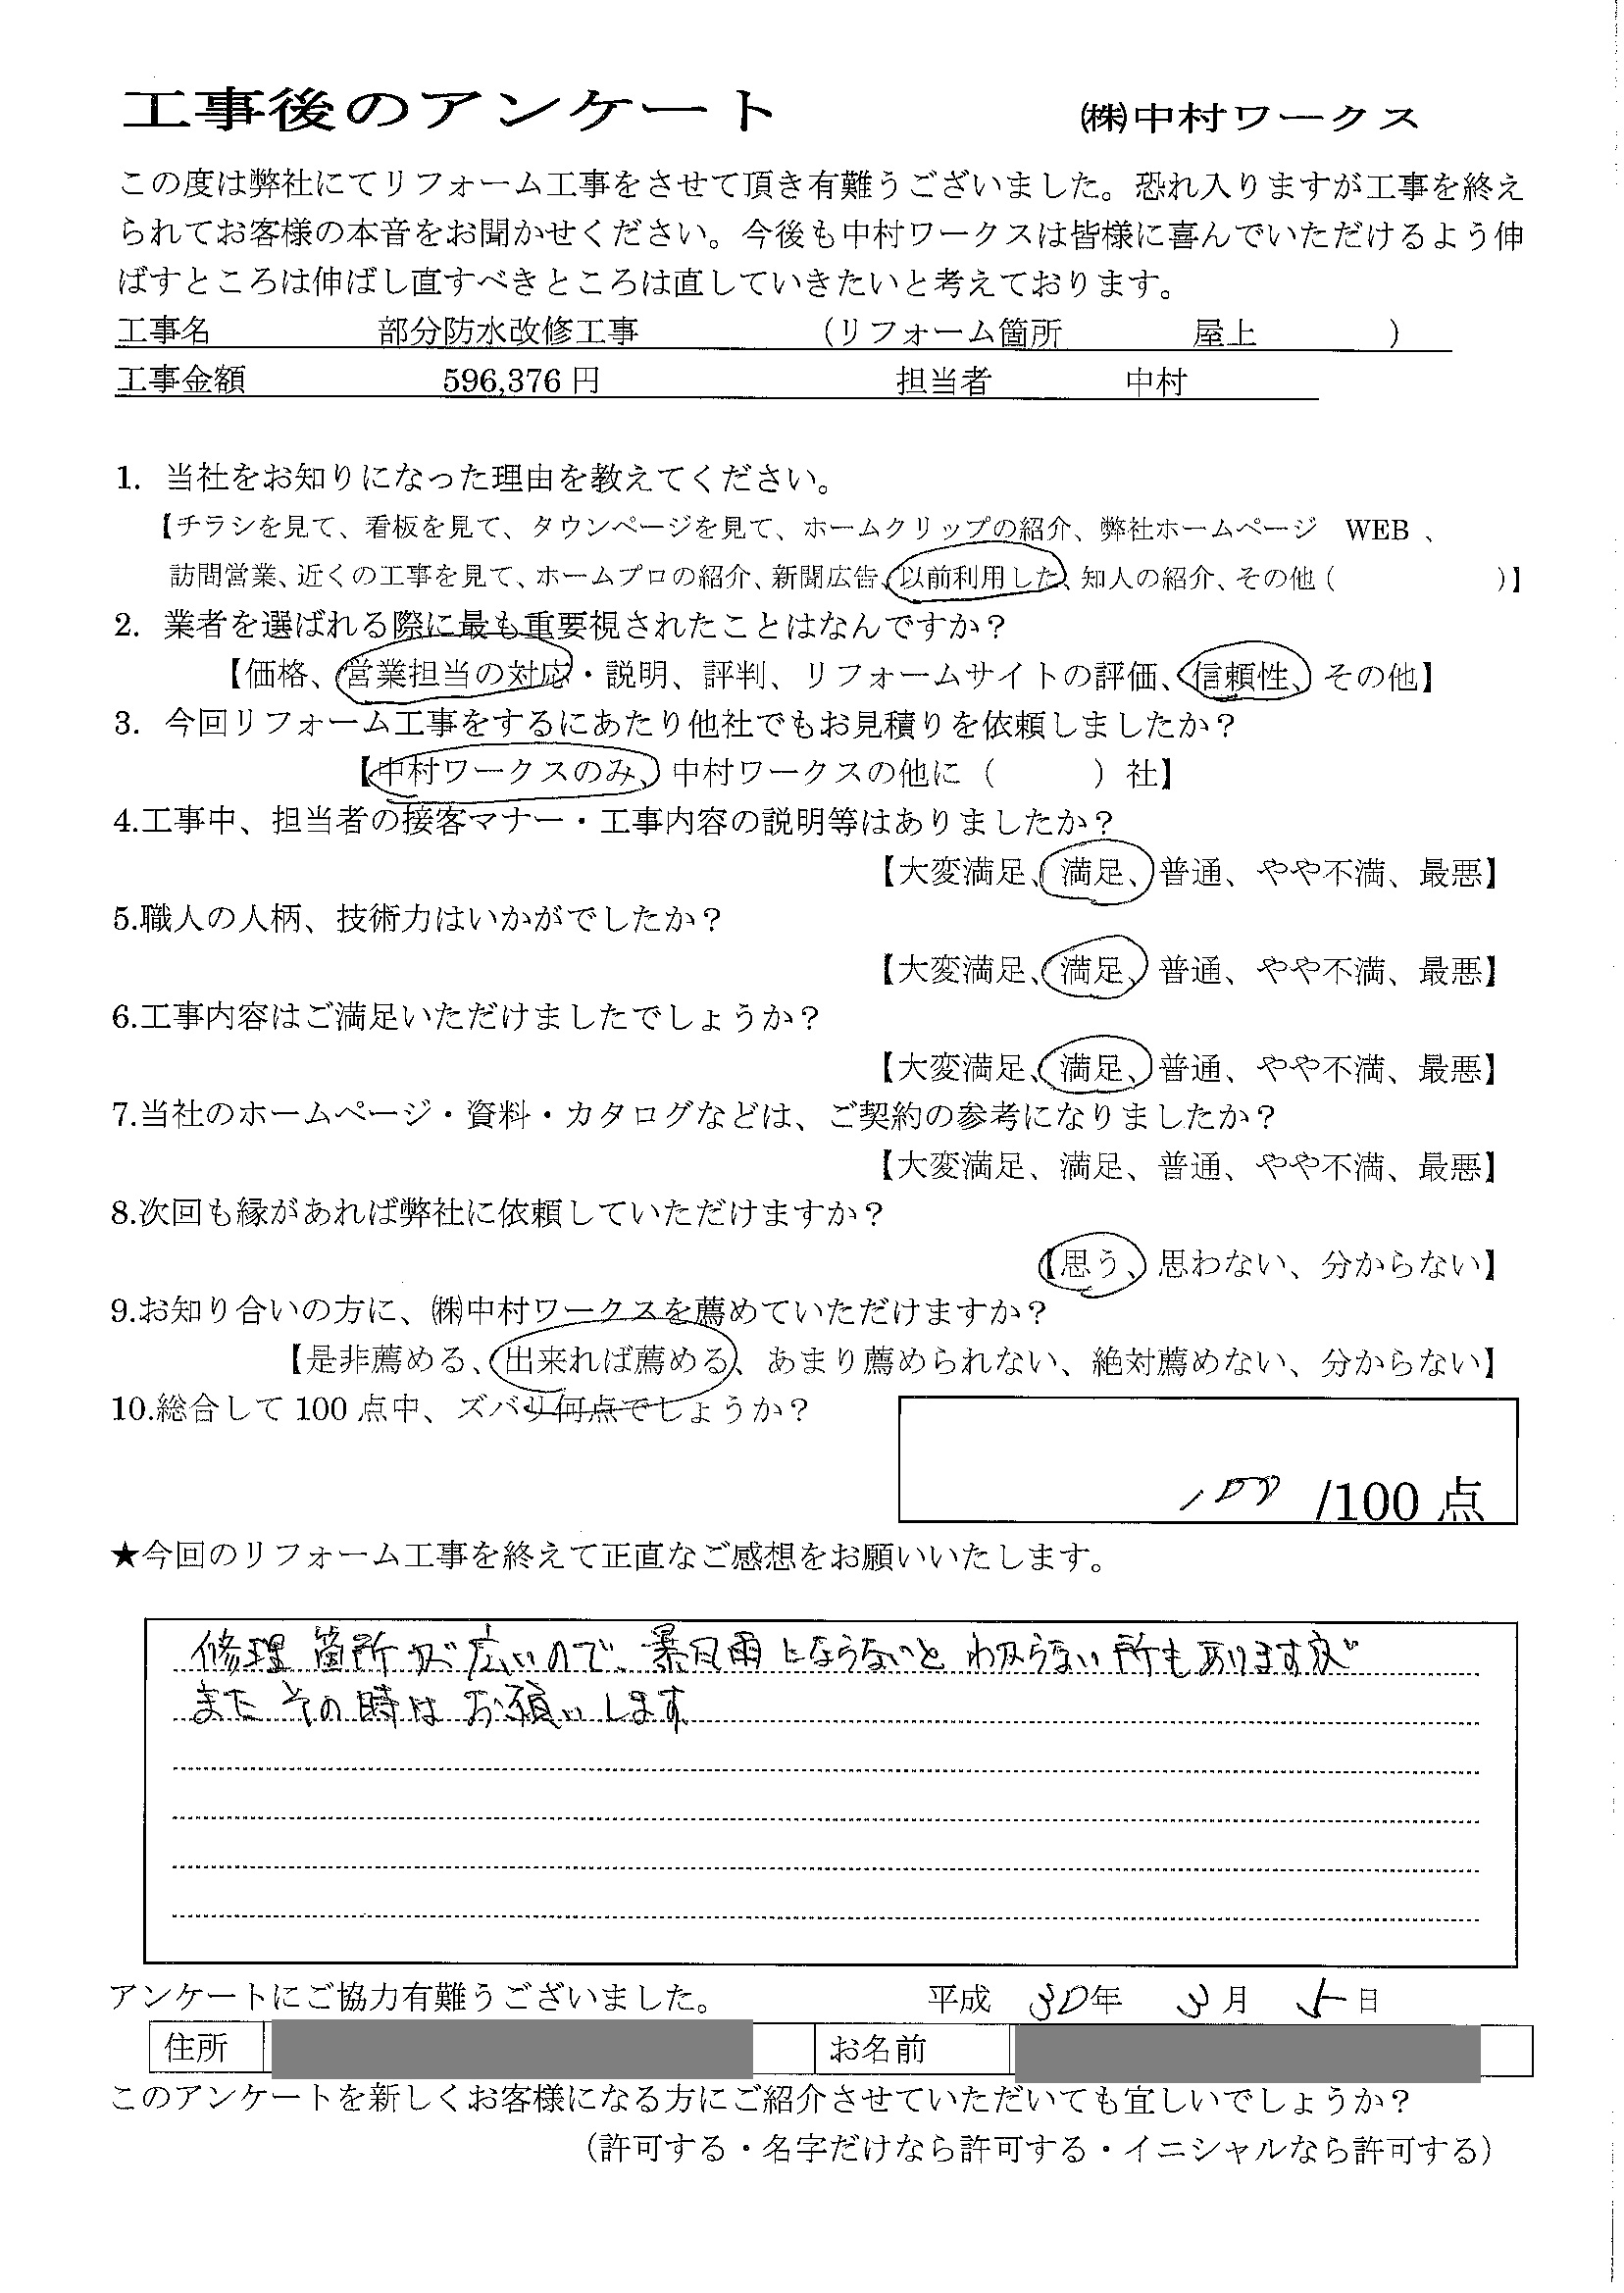 工事後のアンケート ㈱中村ワークス
この度は弊社にてリフォーム工事をさせて頂き有難うございました。恐れ入りますが工事を終え
られてお客様の本音をお聞かせください。今後も中村ワークスは皆様に喜んでいただけるよう伸
ばすところは伸ばし直すべきところは直していきたいと考えております。
工事名 部分防水改修工事 (リフォーム箇所 屋上 )
工事金額 596,376 円 担当者 中村
1. 当社をお知りになった理由を教えてください。
【チラシを見て、看板を見て、タウンページを見て、ホームクリップの紹介、弊社ホームページ WEB 、
訪問営業、近くの工事を見て、ホームプロの紹介、新聞広告、以前利用した、知人の紹介、その他 ( )】
2. 業者を選ばれる際に最も重要視されたことはなんですか？
【価格、営業担当の対応・説明、評判、リフォームサイトの評価、信頼性、その他】
3. 今回リフォーム工事をするにあたり他社でもお見積りを依頼しましたか？
【中村ワークスのみ、中村ワークスの他に ( ) 社】
4.工事中、担当者の接客マナー・工事内容の説明等はありましたか？
【大変満足、満足、普通、やや不満、最悪】
5.職人の人柄、技術力はいかがでしたか？
【大変満足、満足、普通、やや不満、最悪】
6.工事内容はご満足いただけましたでしょうか？
【大変満足、満足、普通、やや不満、最悪】
7.当社のホームページ・資料・カタログなどは、ご契約の参考になりましたか？
【大変満足、満足、普通、やや不満、最悪】
8.次回も縁があれば弊社に依頼していただけますか？
【思う、思わない、分からない】
9.お知り合いの方に、㈱中村ワークスを薦めていただけますか？
【是非薦める、出来れば薦める、あまり薦められない、絶対薦めない、分からない】
10.総合して 100 点中、ズバリ何点でしょうか？
100 /100 点
★今回のリフォーム工事を終えて正直なご感想をお願いいたします。
修理箇所が広いので、暴風雨にならないとわからない所もありますが
またその時はお願いします
アンケートにご協力有難うございました。 平成 30年 3月 5日
住所 お名前
このアンケートを新しくお客様になる方にご紹介させていただいても宜しいでしょうか？
(許可する・名字だけなら許可する・イニシャルなら許可する)